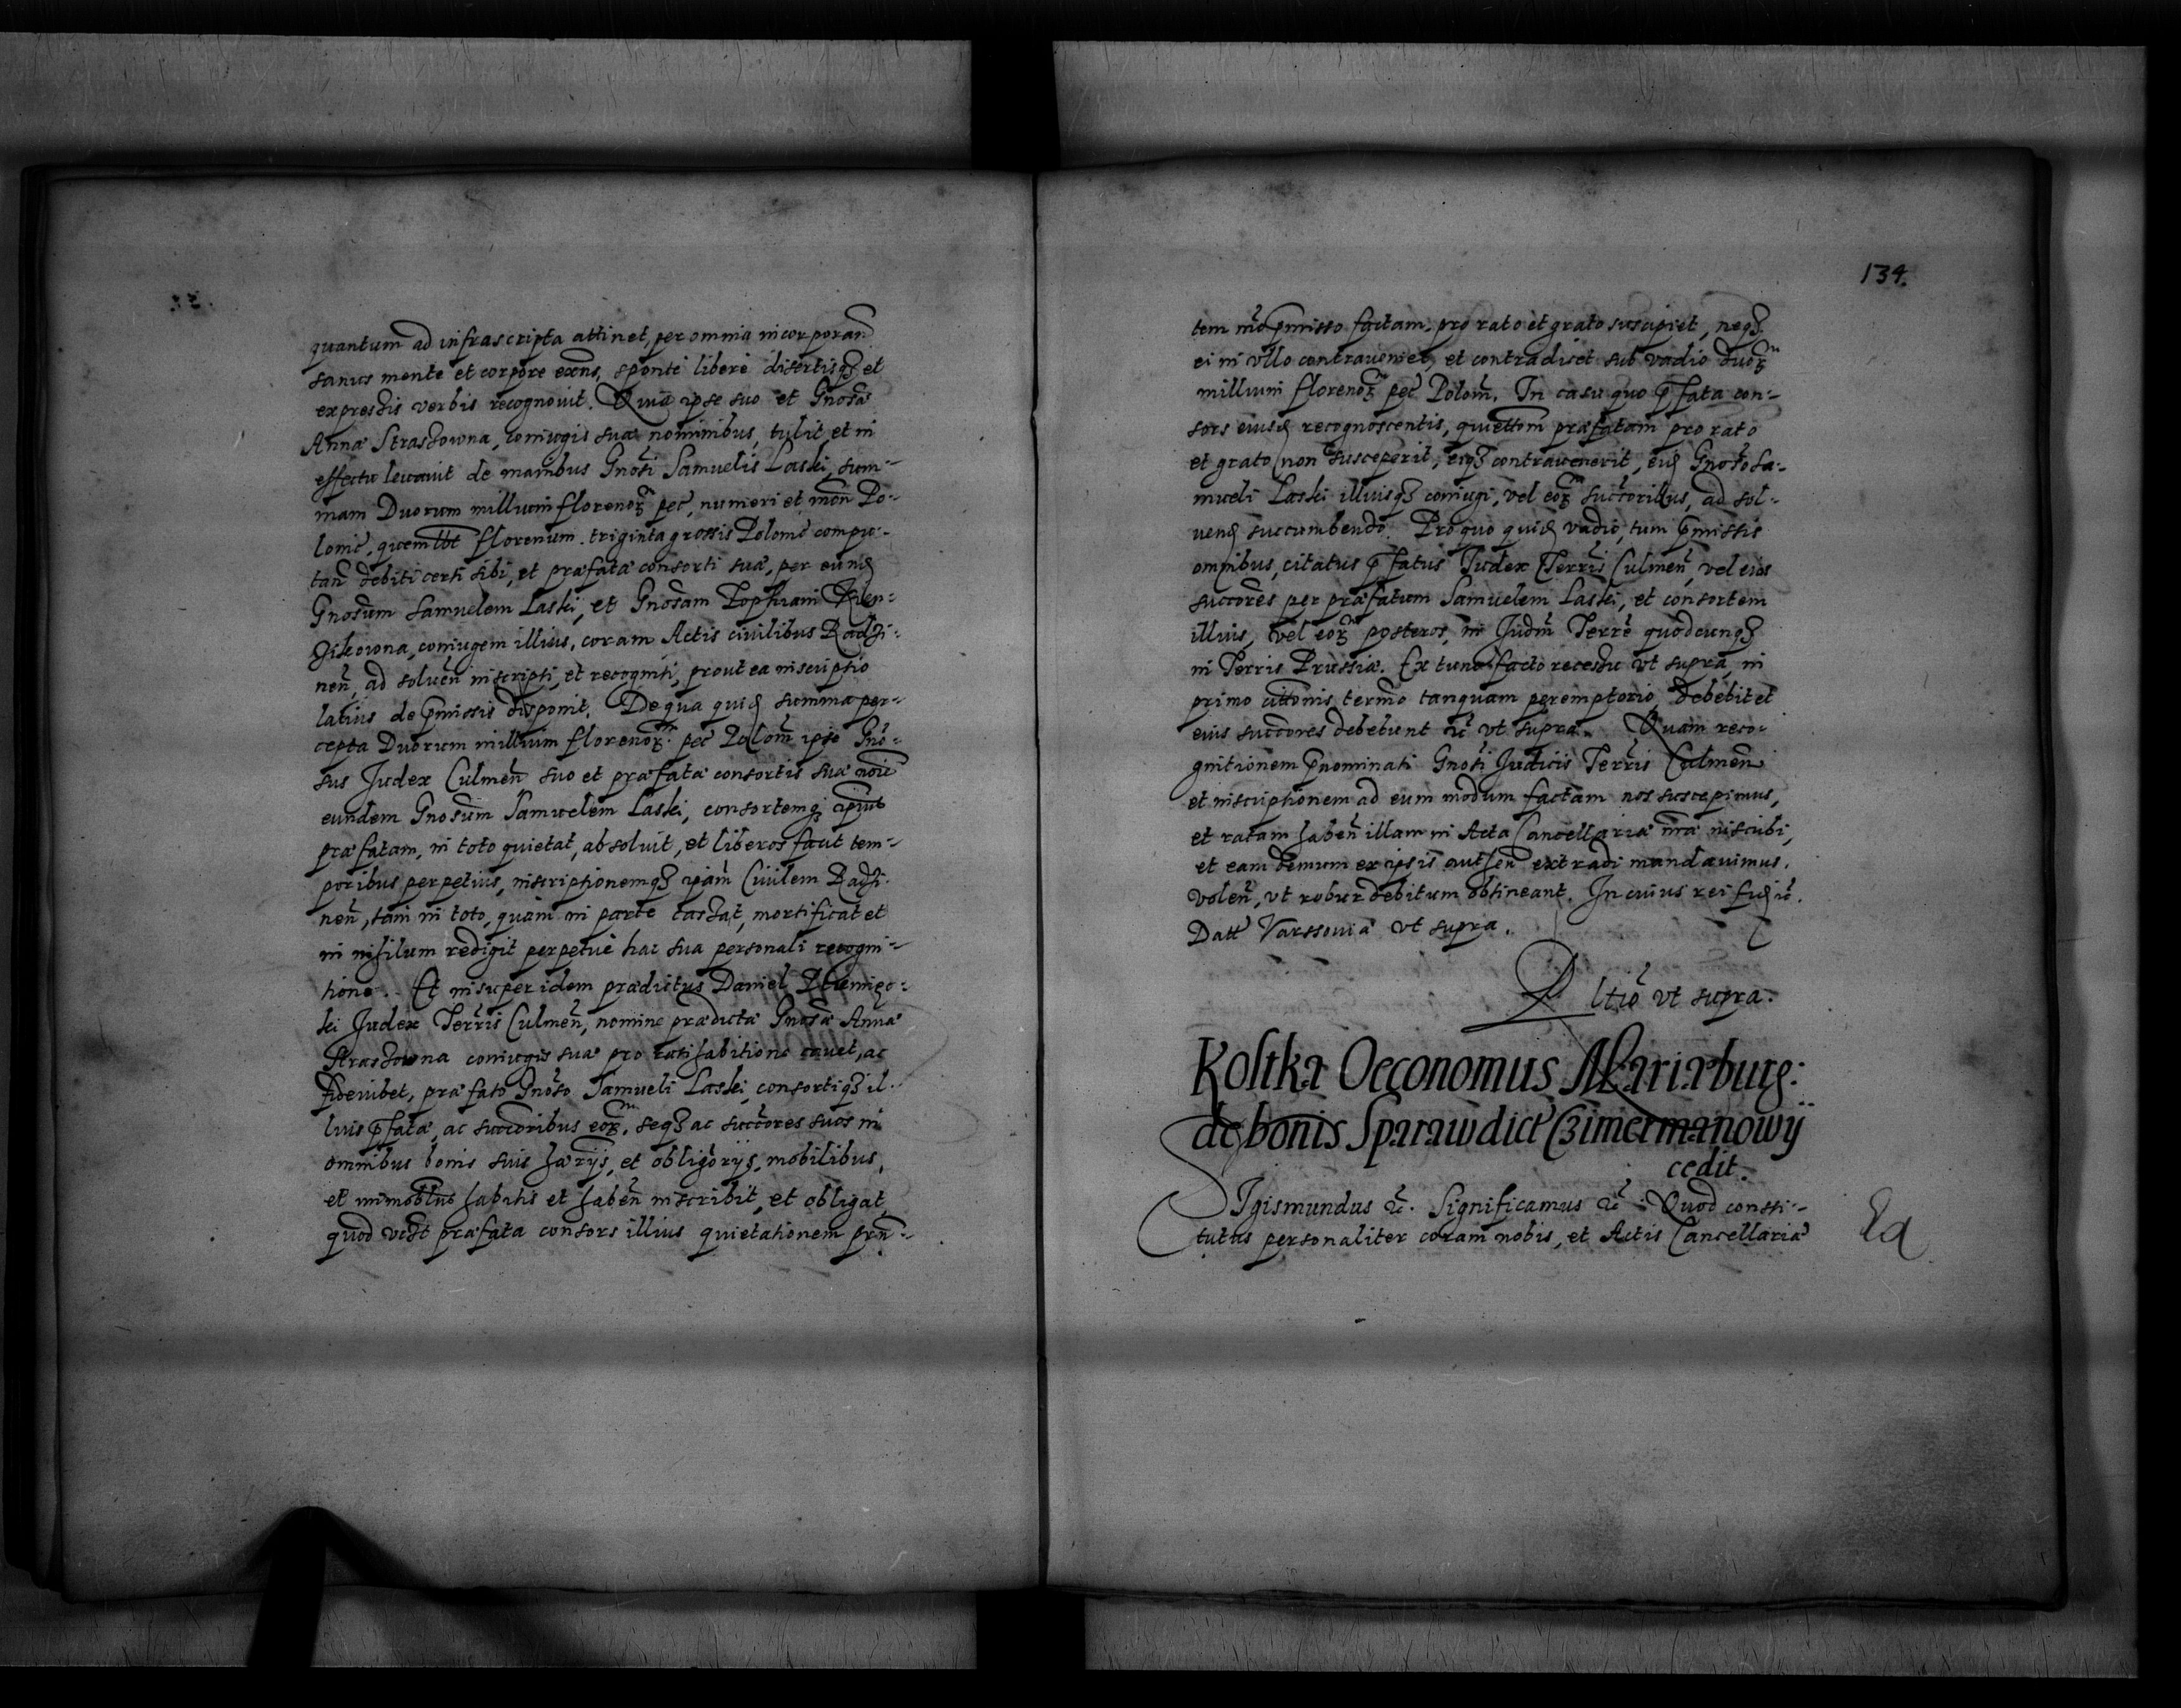 quantum ad infrascripta attinet, per omnia incorporan̄
sanus mente et corpore exn̄s, sponte libere disertisq; et
expressis verbis recognouit. Quia ipse suo et Gnosæ
Annæ Straszowna, coniugis suæ nominibus, tulit et in
effectu leuauit de manibus Gnosi Samuelis Laski, sum-
mam Duorum millium florenor̄ pec̄, numeri et mon̄ Po-
lonic̄, quemlbt florenum triginta grossis Polonic̄ compu-
tan̄ debiti certi sibi, et præfatæ consorti suæ, per eund̄
Gnosum Samuelem Laski, et Gnosam
coniugem illius, coram Actis ciuilibus Radzi-
nen̄, ad soluen̄ inscripti, et recogniti, prout ea inscriptio
latius de p̄missis disponit. De qua quid̄ summa per-
cepta Duorum millium florenor̄ pec̄ Polon̄ ipse Gno-
sus Judex Culmen̄ suo et præfatæ consortis suæ noīe
eundem Gnosum Samuelem Laski, consortemq; ipius
præfatam, in toto quietat, absoluit, et liberos facit tem-
poribus perpetuis, inscriptionemq; ipam̄ Ciuilem Radzi-
nen̄, tam in toto, quam in parte cassat, mortificat et
in nihilum redigit perpetue hac sua personali recogni-
tione. Et insuper idem prædictus Daniel
ki Judex Terrīs Culmen̄, nomine prædictæ Gnosæ Annæ
Straszowna coniugis suæ pro ratihabitione cauet, ac
fideiubet, præfato Gnoso Samueli Laski, consortiq; il-
lius p̄fatæ, ac succoribus eor̄, seq; ac succores suos in
omnibus bonis suis hærijs, et obligorijs, mobilibus,
et immoblibus habitis et haben̄ inscribit, et obligat,
quod præfata consors illius quietationem prn̄-
134.
tem mō p̄misso factam, pro rato et grato suscipiet, neq;
ei in vllo contraueniet, et contradicet sub vadio duor̄
millium florenor̄ pec̄ Polon̄. In casu quo p̄fata con-
sors eiusd̄ recognoscentis, quiettom̄ præfatam pro rato
et grato non susceperit, eiq; contrauenerit, eid̄ Gnoso Sa-
mueli Laski illiusq; coniugi, vel eor̄ succoribus, ad sol-
uend̄ succumbendo. Pro quo quid̄ vadio, tum p̄missis
omnibus, citatus p̄fatus Judex Terrīs Culmen̄, vel eius
succores per præfatum Samuelem Laski, et consortem
illius, vel eor̄ posteros, in Judm̄ Terrē quodcunq;
in Terris Prussiæ. Ex tunc facto recessu vt supra, in
primo cittonis termō tanquam peremptorio, debebit et
eius succores debebunt &c̄ vt supra. Quam reco-
gnitionem p̄nominati Gnosi Judicis Terrīs Culmen̄
et inscriptionem ad eum modum factam nos suscepimus,
et ratam haben̄ illam in Acta Cancellariæ nr̄æ inscribi,
et eam demum ex ipsis authen̄ extradi mandauimus.
volen̄, vt robur debitum obtineant. In cuius rei fid̄ &c̄.
Datt̄ Varssouiæ vt supra.
vt supra.
Kostka Oeconomus Mariæburg:
de bonis Sparaw dict̄ Czimermanowy
cedit.
Sigismundus &c̄. Significamus &c̄ Quod consti-
tutus personaliter coram nobis, et Actis Cancellariæ